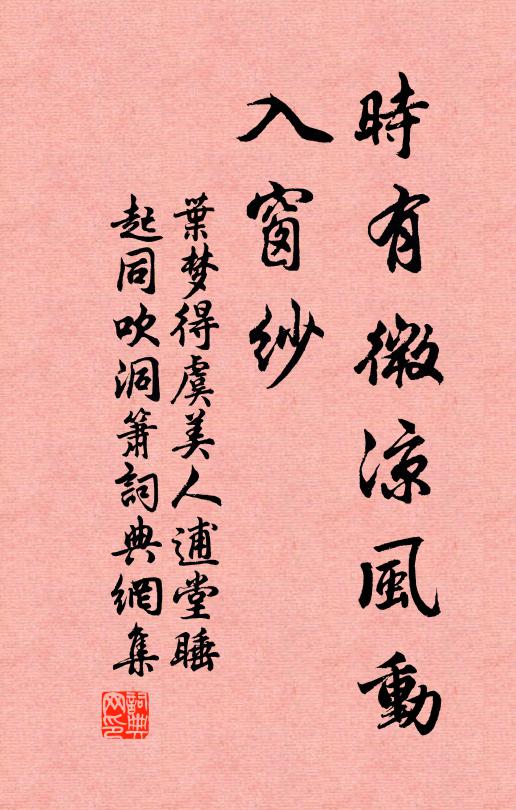 時有微涼風動
入窗紗
葉梦得虞美人逋堂睡
起同吹洞簫詞典網集
詞典
网印